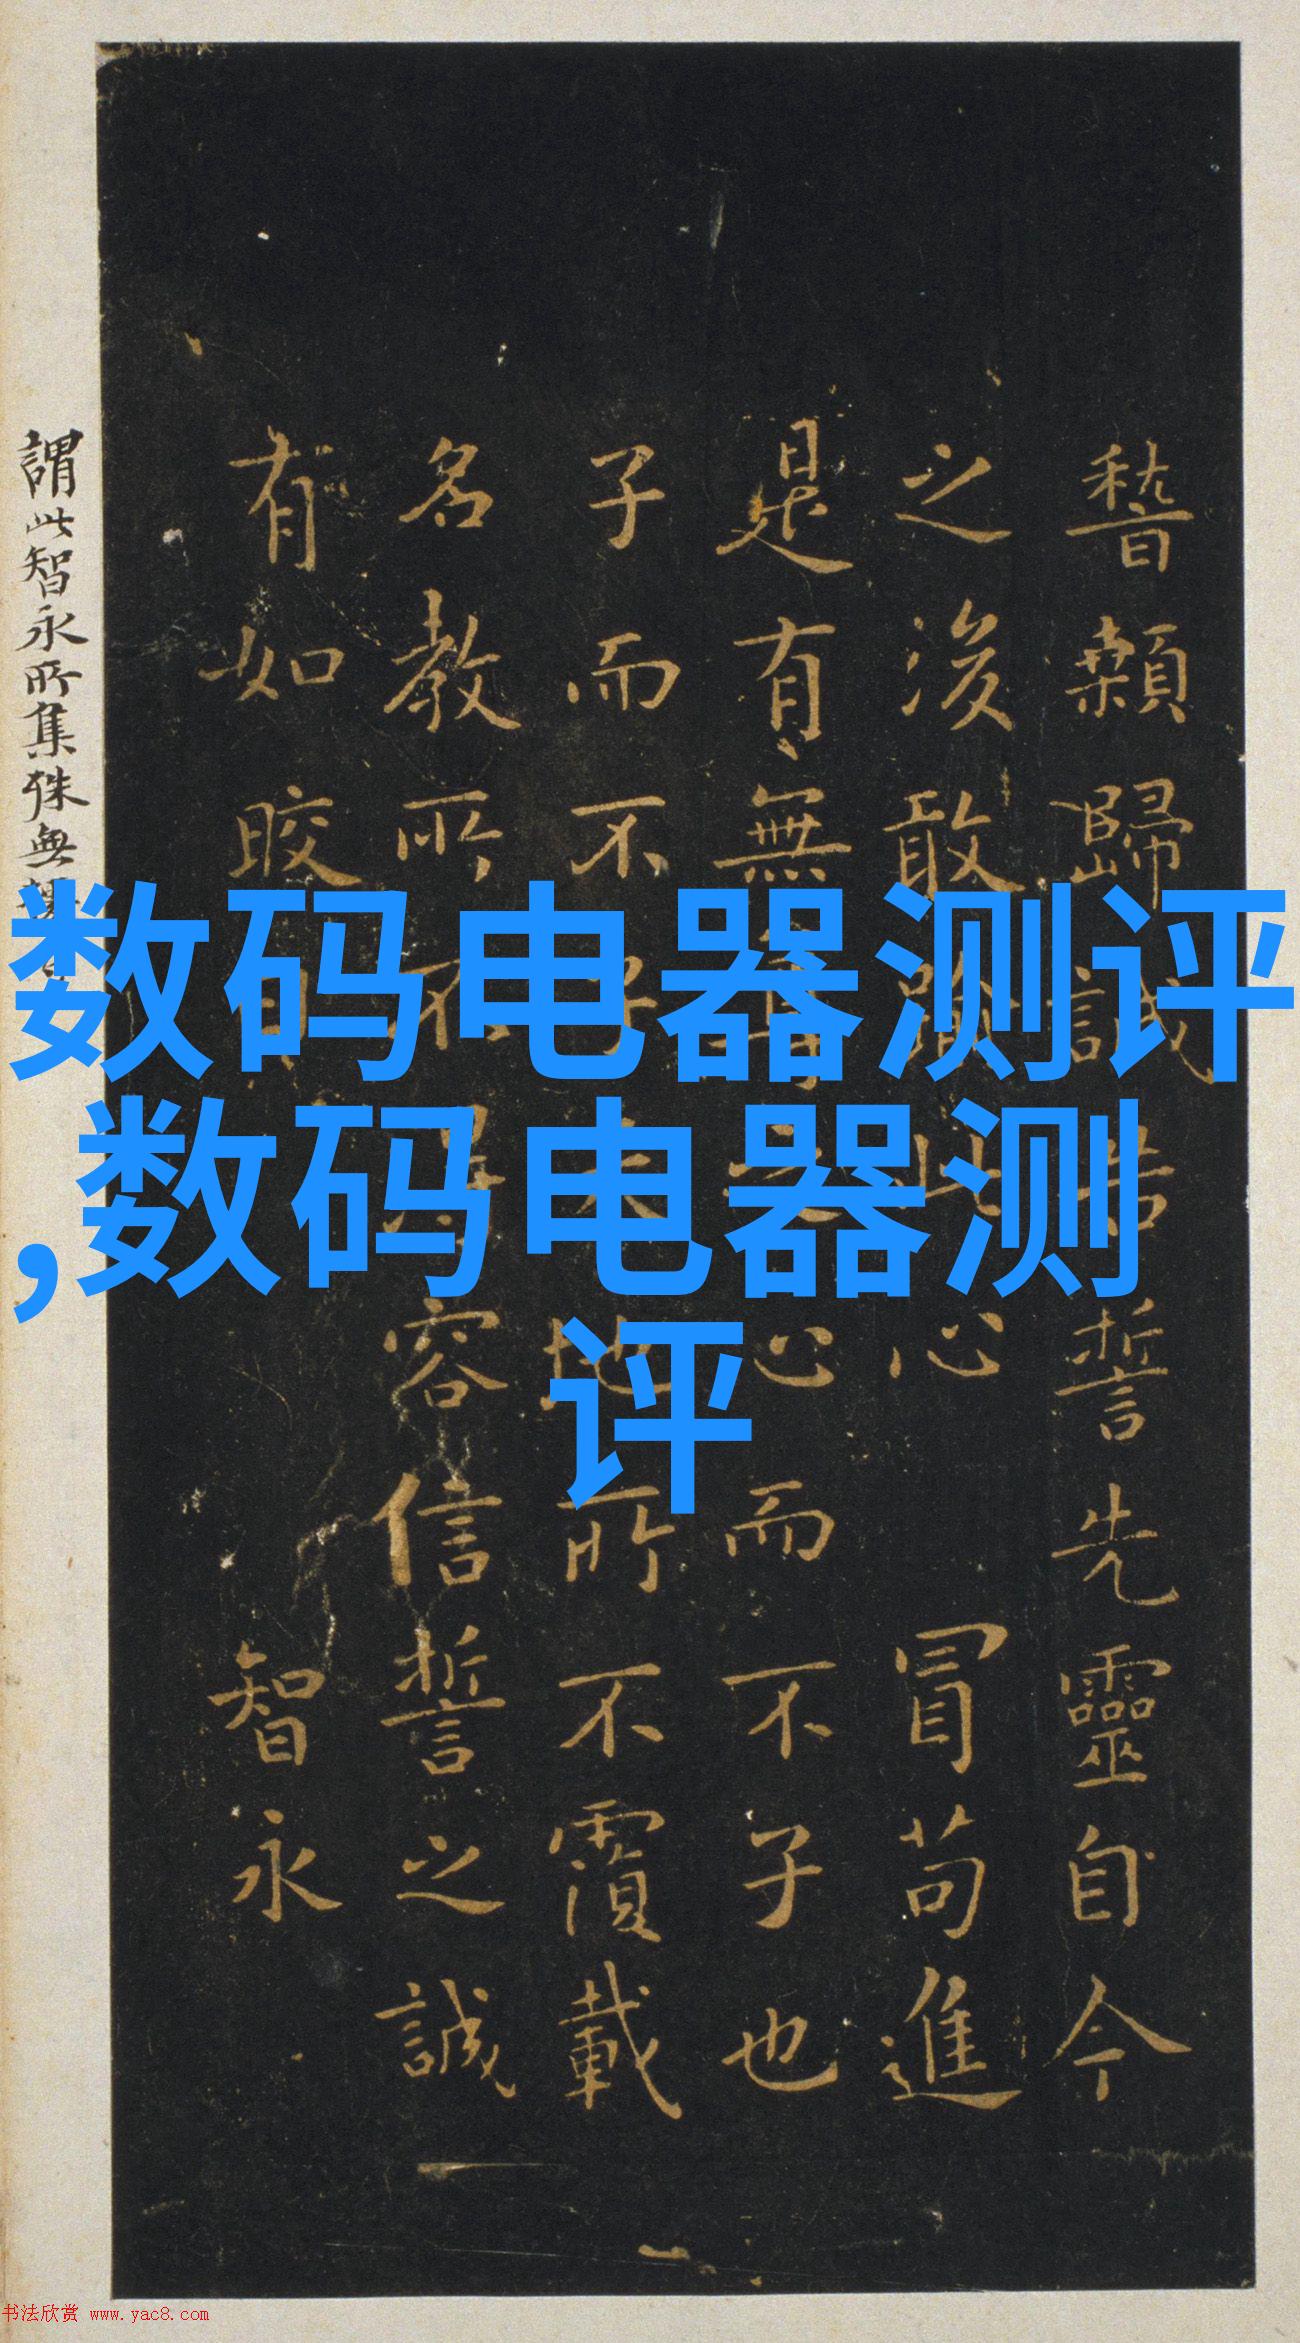 稽顙歸誠告誓先靈自今
之後敢 此心 冒苟進
是有無尊之心而不子也
子而不子天地所不覆載
名教所不得容信誓之誠
有如皎日
智永
謂此智永所集殊無
数码电器测评
,数码电器测
评
书法欣赏 www.yac8.com